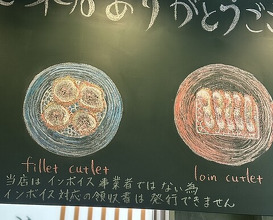 来店ありがとうござ
fillet cutlet
loin cutlet
当店は インボイス 事業者ではない為
インボイス対応の領収書は 発行できません